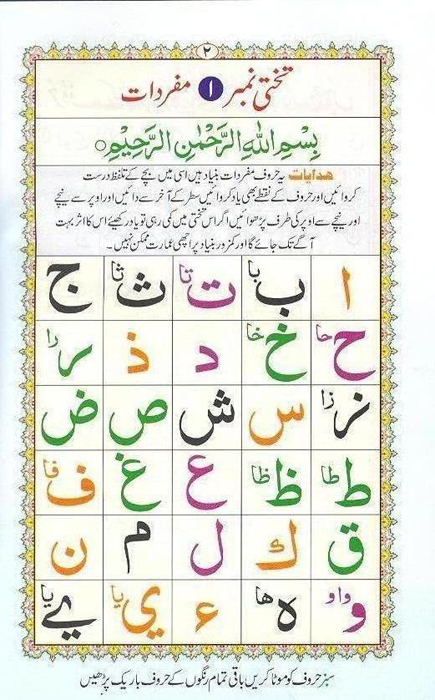 ۲
تختی نمبر ۱ مفردات
بِسْمِ اللهِ الرَّحْمٰنِ الرَّحِيْمِ
ھدایات یہ حروف مفردات بنیاد ہیں اسی میں بچے کے تلفظ درست
کروائیں اور حروف کے نقطے بھی یاد کروائیں سطر کے آخر سے دائیں اور اوپر سے نیچے
اور نیچے سے اوپر کی طرف پڑھوائیں اگر اس تختی میں کمی رہی تو یاد رکھیئے اس کا اثر بہت
آگے تک جائے گا اور کمزور بنیاد پر اچھی عمارت ممکن نہیں۔
ا ب با ت تا ث ثا ج
ح حا خ خا د ذ ر را
ز زا س ش ص ض
ط طا ظ ظا ع غ ف فا
ق ك ل م ن
و واو ه ها ء ي يا ے يا
سبز حروف کو موٹا کریں باقی تمام رنگوں کے حروف باریک پڑھیں